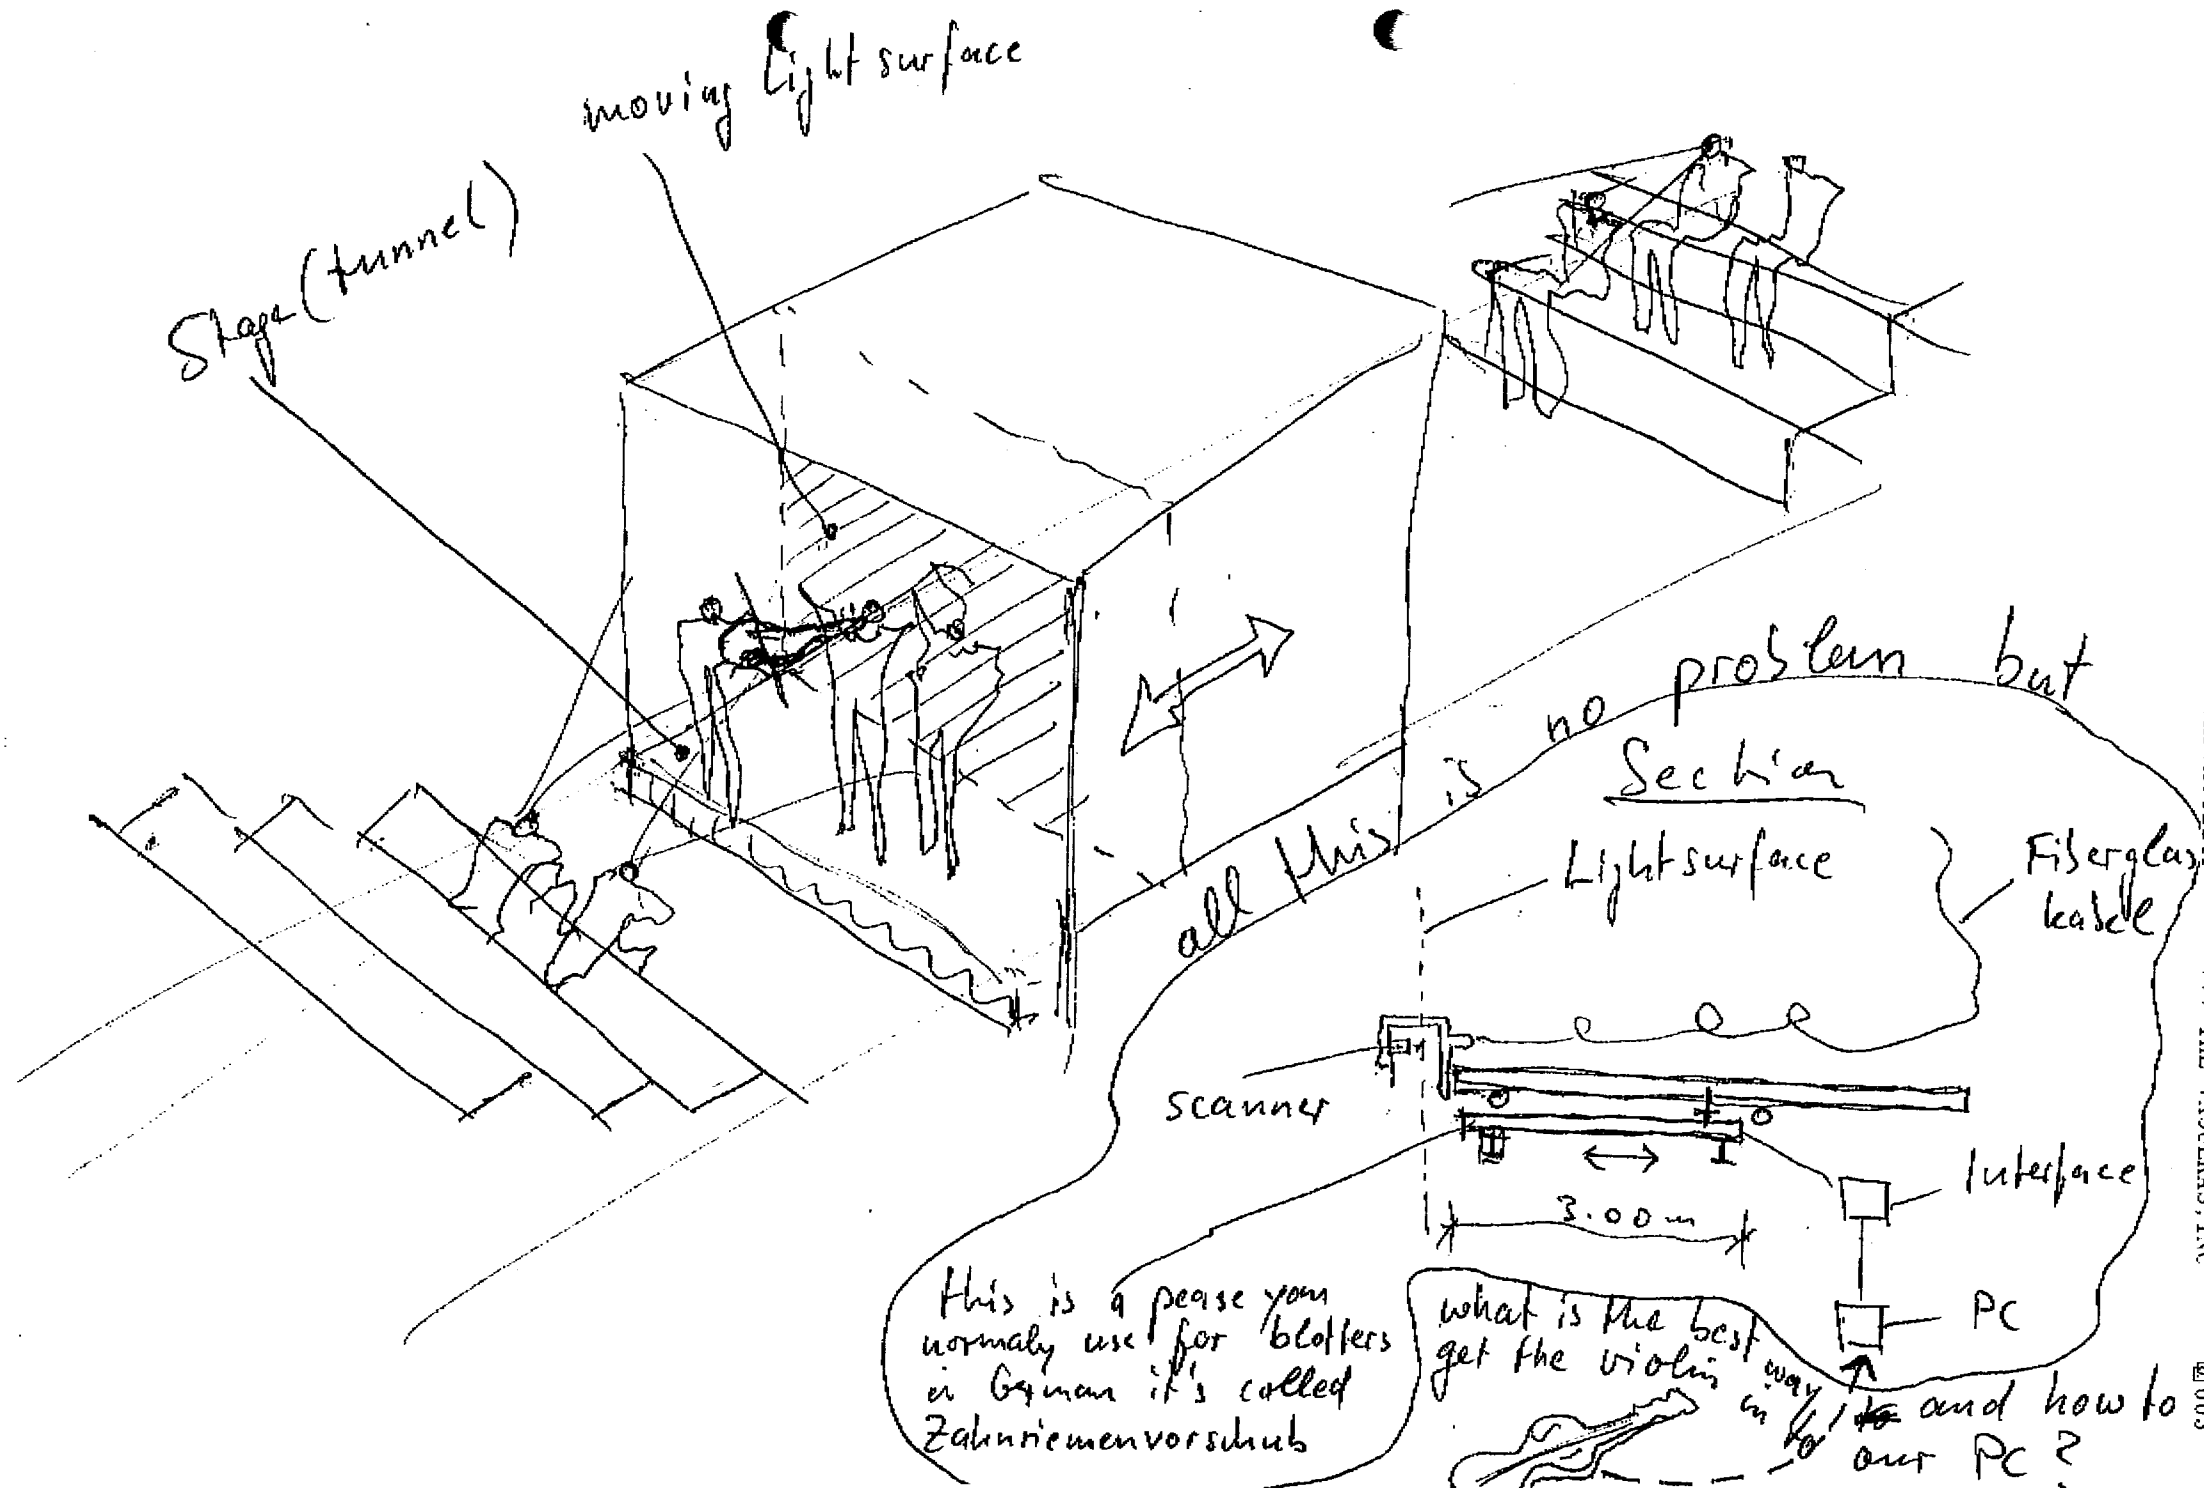 moving Lightsurface
Stage (tunnel)
all this is no problem but
Section
Lightsurface
Fiberglas
kabel
scanner
Interface
3.00m
PC
this is a pease you
normaly use for blotters
in German it's called
Zahnriemenvorschub
what is the best way
get the violin in
and how to
our PC ?